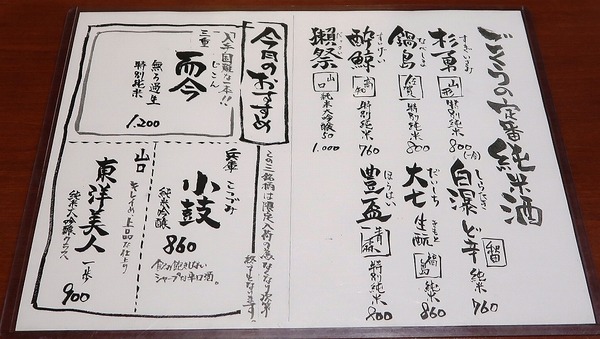 ごくりの定番純米酒
杉勇 すぎいさみ 山形 特別純米 800(一合)
鍋島 なべしま 佐賀 特別純米 800
酔鯨 すいげい 高知 特別純米 760
獺祭 だっさい 山口 純米大吟醸50 1.000
白瀑 しらたき ど辛 秋田 純米 760
大七 だいしち 生酛 きもと 福島 純米 860
豊盃 ほうはい 青森 特別純米 800
今月のおすすめ
この三銘柄は限定入荷の為なくなり次第終了となります。
入手困難な一本!!
三重
而今 じこん
無ろ過生
特別純米
1.200
兵庫
小鼓 こつづみ
純米吟醸
860
シャープな辛口酒。
山口
キレイめ上品な仕上り
東洋美人 一歩
純米大吟醸クラス
900